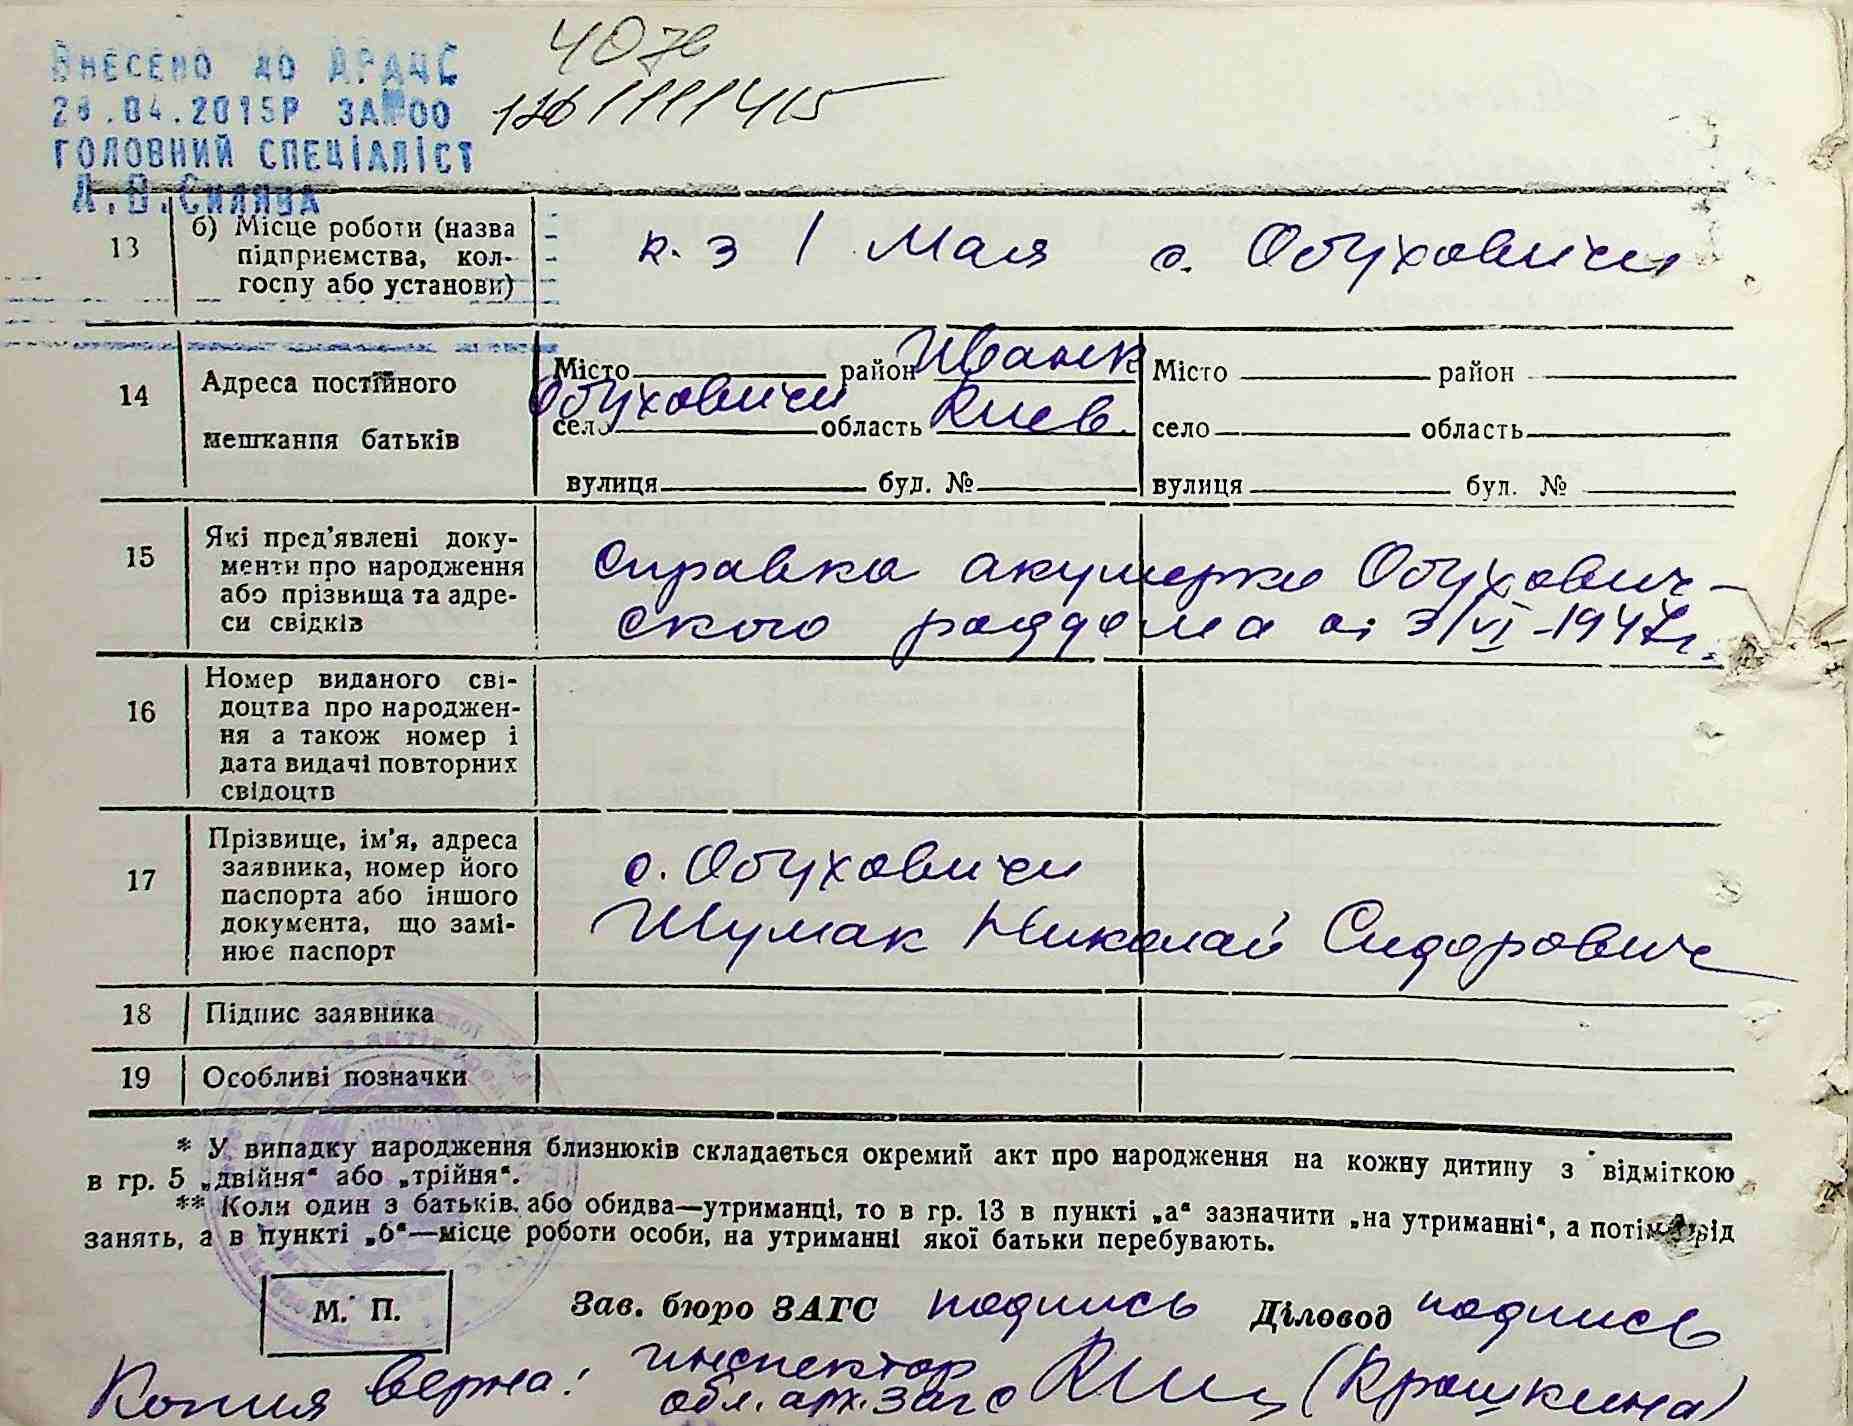 Внесено до ДРАЦС
4078
28.04.2015р за №00
126111415
головний спеціаліст
А.В.Силява
13
б) Місце роботи (назва
підприємства, кол-
госпу або установи)
к. з 1 Мая с. Обуховичи
14
Адреса постійного
мешкання батьків
Місто район Иванк
село Обуховичи область Киев.
вулиця буд. №
Місто район
село область
вулиця буд. №
15
Які пред'явлені доку-
менти про народження
або прізвища та адре-
си свідків
Справка акушерки Обухович-
ского роддома от 3/VI-1947г.
16
Номер виданого сві-
доцтва про народжен-
ня а також номер і
дата видачі повторних
свідоцтв
17
Прізвище, ім'я, адреса
заявника, номер його
паспорта або іншого
документа, що замі-
нює паспорт
с. Обуховичи
Шумак Николай Сидорович
18
Підпис заявника
19
Особливі позначки
* У випадку народження близнюків складається окремий акт про народження на кожну дитину з відміткою
в гр. 5 „двійня“ або „трійня“.
** Коли один з батьків, або обидва—утриманці, то в гр. 13 в пункті „а“ зазначити „на утриманні“, а потім рід
занять, а в пункті „б“—місце роботи особи, на утриманні якої батьки перебувають.
М. П.
Зав. бюро ЗАГС подпись Діловод подпись
Копия верна: инспектор
обл. арх. Загс (Крошкина)